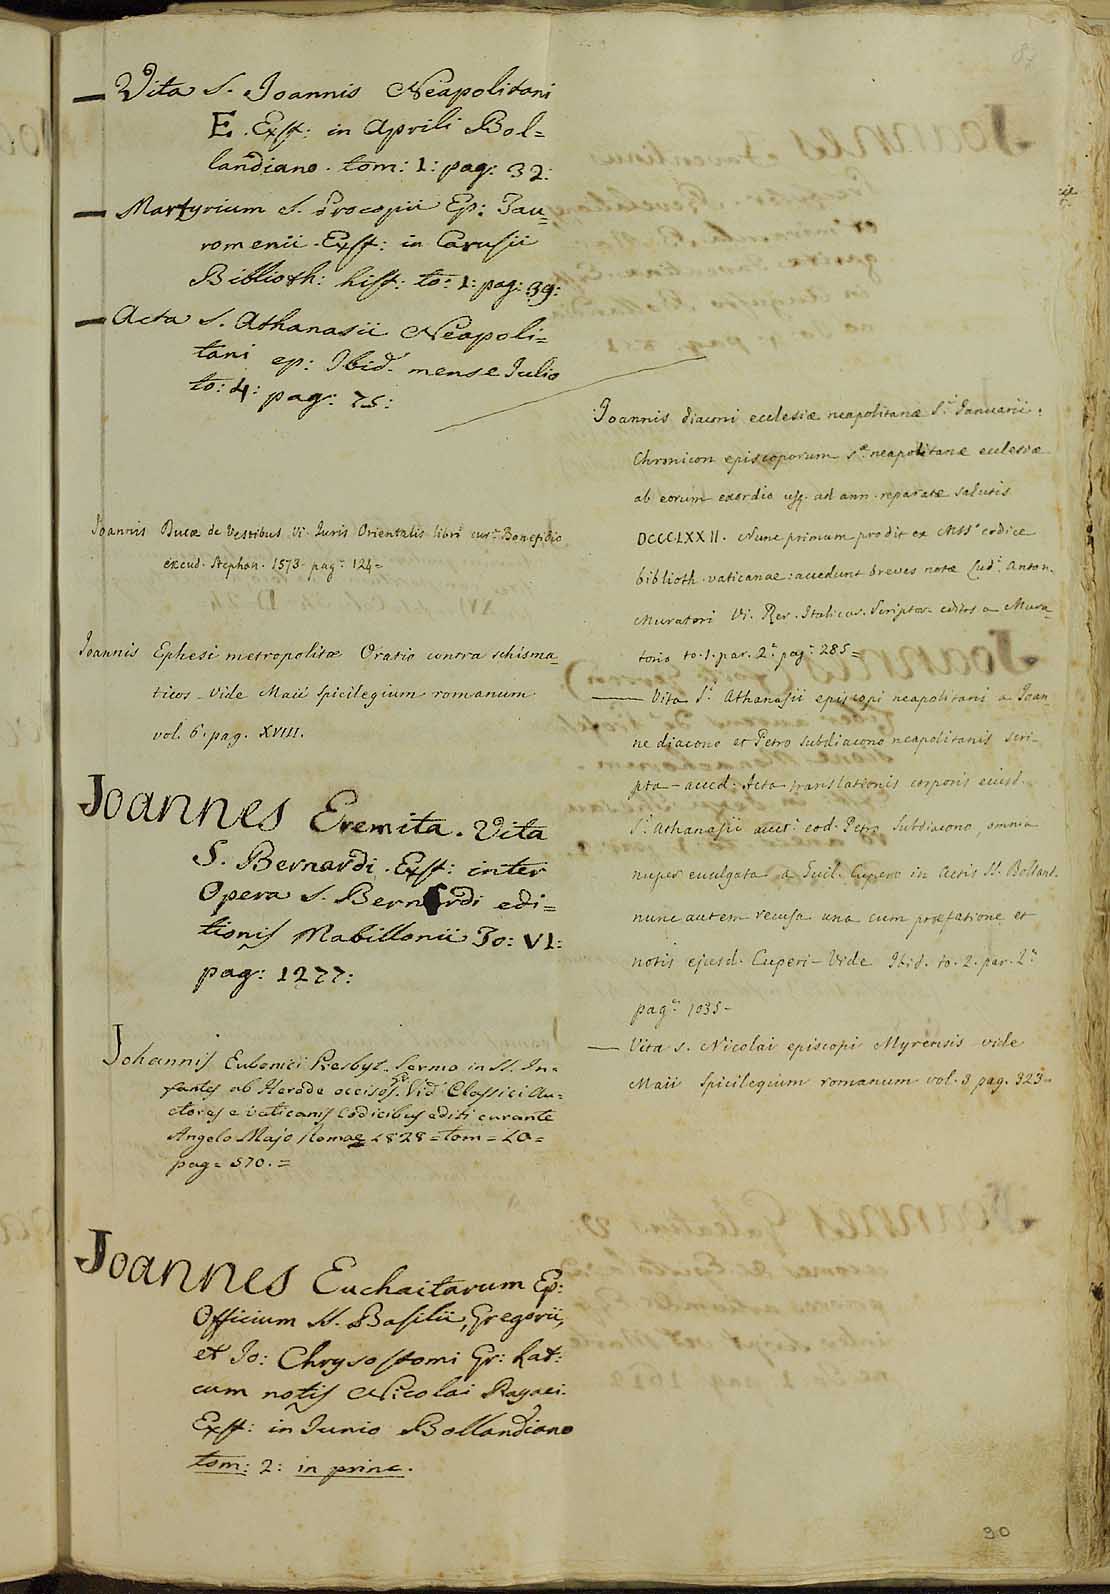 — Vita S. Joannis Neapolitani
E. Exst: in Aprili Bol=
landiano. tom: 1: pag: 32:
— Martyrium S. Procopii Ep: Tau=
romenii. Exst: in Carusii
Biblioth: hist: to: 1: pag: 39:
— Acta S. Athanasii Neapoli=
tani ep: Ibid. mense Julio
to: 4: pag: 75:
Joannis Ducæ de Vestibus Vi. Juris Orientalis libri cur.e Bonefidio
excud. Stephan. 1573. pag: 124=
Joannis Ephesi metropolitæ Oratio contra schisma=
ticos – Vide Maii Spicilegium romanum
vol. 6. pag. XVIII.
Joannes Eremita. Vita
S. Bernardi. Exst: inter
Opera S. Bernardi edi=
tionis Mabillonii To: VI:
pag: 1277:
Johannis Eubenici Presbyt. Sermo in SS. In=
fantes ab Herode occisos. Vid. Classici Au=
ctores e vaticanis Codicibus editi curante
Angelo Majo Romae 1828 = tom = 10 =
pag = 570. =
Joannes Euchaitarum Ep:
Officium SS. Basilii, Gregorii,
et Jo: Chrysostomi Gr: Lat:
cum notis Nicolai Rayaei.
Exst: in Junio Bollandiano
tom: 2: in princ.
87
Joannis diaconi ecclesiæ neapolitanæ S.i Januarii.
Chronicon episcoporum S.æ neapolitanæ ecclesiæ
ab eorum exordio usq. ad ann. reparatæ salutis
DCCCLXXII. Nunc primum prodit ex MSS.o codice
biblioth. vaticanae: accedunt breves notæ Lud.i Anton.
Muratori Vi. Rer. Italicar. Scriptor. editos a Mura=
torio to. 1. par. 2.a pag: 285=
— Vita S.i Athanasii episcopi neapolitani a Joan
ne diacono et Petro subdiacono neapolitanis scri=
pta – acced: Acta translationis corporis eiusd.
S.i Athanasii auct.e eod. Petro Subdiacono, omnia
nuper evulgata a Guil. Cupero in Actis SS. Bolland.
nunc autem recusa una cum præfatione et
notis ejusd. Cuperi – Vide Ibid. to. 2. par. 2.a
pag: 1035 –
— Vita S. Nicolai episcopi Myrensis vide
Maii Spicilegium romanum vol. 3 pag. 323=
90